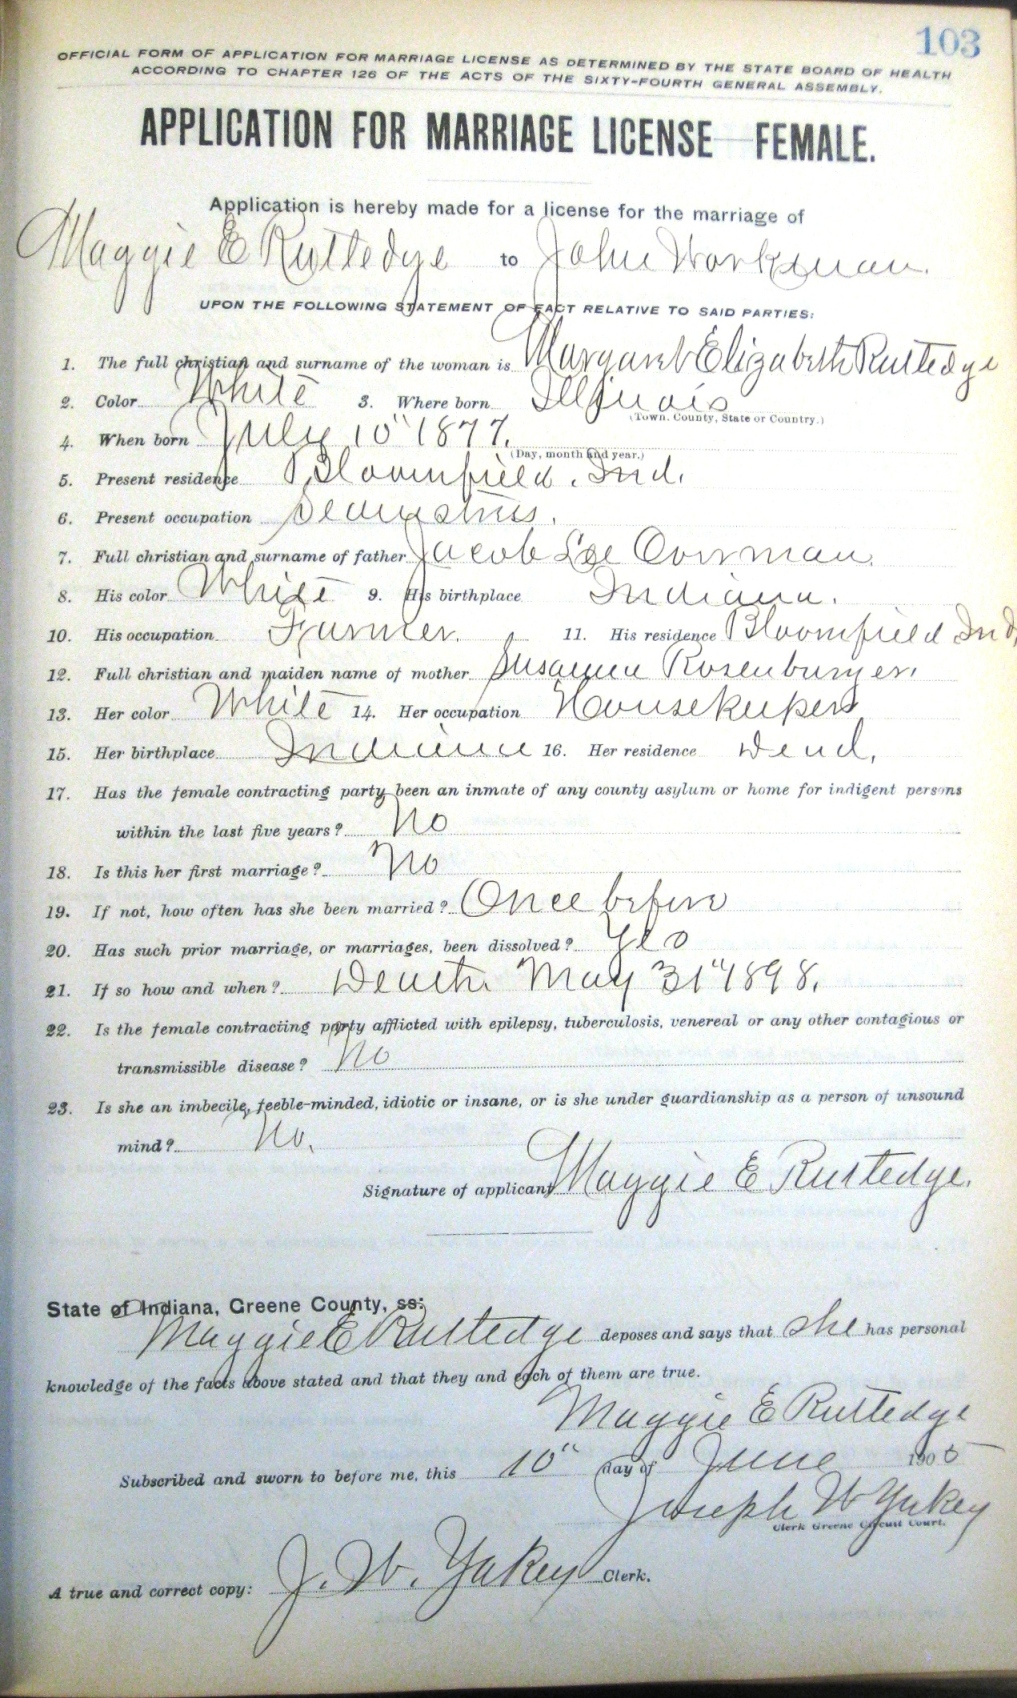 103
OFFICIAL FORM OF APPLICATION FOR MARRIAGE LICENSE AS DETERMINED BY THE STATE BOARD OF HEALTH
ACCORDING TO CHAPTER 126 OF THE ACTS OF THE SIXTY-FOURTH GENERAL ASSEMBLY.
APPLICATION FOR MARRIAGE LICENSE FEMALE.
Application is hereby made for a license for the marriage of
Maggie E Rutledge to John Workman.
UPON THE FOLLOWING STATEMENT OF FACT RELATIVE TO SAID PARTIES:
1. The full christian and surname of the woman is Margaret Elizabeth Rutledge
2. Color White 3. Where born Illinois
(Town, County, State or Country.)
4. When born July 10" 1877.
(Day, month and year.)
5. Present residence Bloomfield, Ind.
6. Present occupation Seamstress.
7. Full christian and surname of father Jacob Lee Corrman.
8. His color White 9. His birthplace Indiana.
10. His occupation Farmer. 11. His residence Bloomfield Ind,
12. Full christian and maiden name of mother Susanna Rosenburger.
13. Her color White 14. Her occupation Housekeeper
15. Her birthplace Indiana 16. Her residence Dead.
17. Has the female contracting party been an inmate of any county asylum or home for indigent persons
within the last five years? No
18. Is this her first marriage? No
19. If not, how often has she been married? Once before
20. Has such prior marriage, or marriages, been dissolved? Yes
21. If so how and when? Death May 31" 1898.
22. Is the female contracting party afflicted with epilepsy, tuberculosis, venereal or any other contagious or
transmissible disease? No
23. Is she an imbecile, feeble-minded, idiotic or insane, or is she under guardianship as a person of unsound
mind? No.
Signature of applicant Maggie E Rutledge.
State of Indiana, Greene County, ss:
Maggie E Rutledge deposes and says that she has personal
knowledge of the facts above stated and that they and each of them are true.
Maggie E Rutledge
Subscribed and sworn to before me, this 10" day of June 1905
Joseph W Yakey
Clerk Greene Circuit Court.
A true and correct copy: J. W. Yakey Clerk.